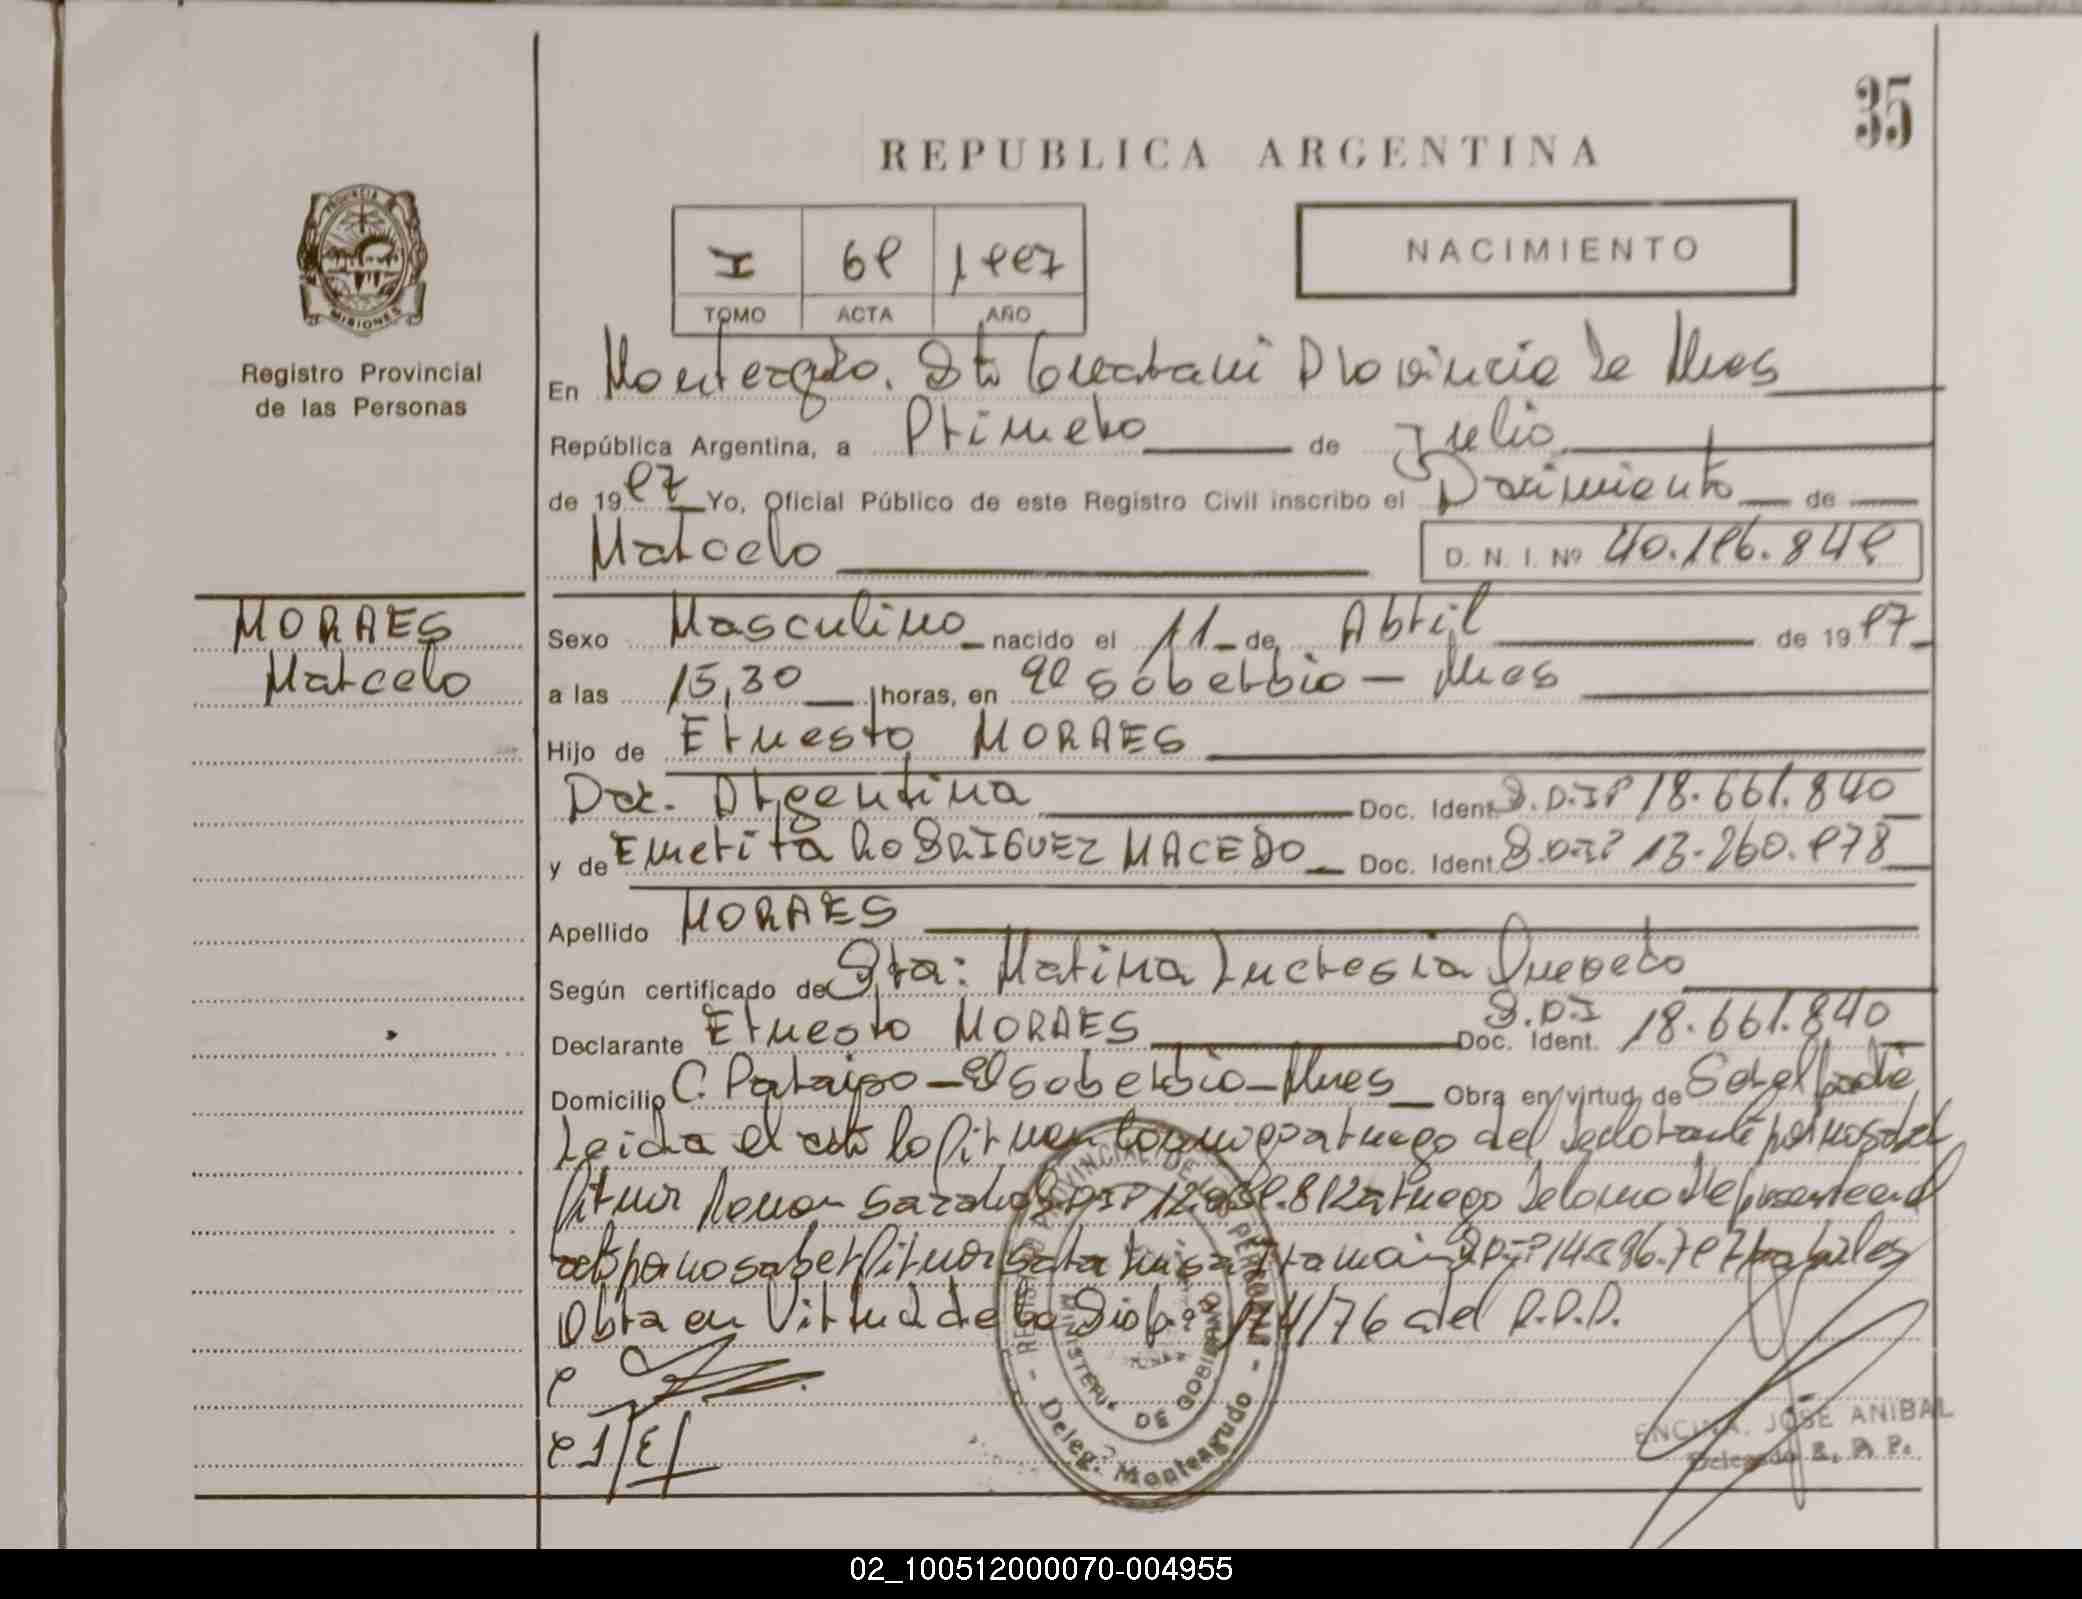 35
REPUBLICA ARGENTINA
PROVINCIA
MISIONES
Registro Provincial
de las Personas
I 69 1997
TOMO ACTA AÑO
NACIMIENTO
En Monteagdo. Dto Guarani Provincia de Mnes
República Argentina, a Primero de Julio
de 1997 Yo, Oficial Público de este Registro Civil inscribo el Nacimiento de
Marcelo D. N. I. Nº 40.196.849
MORAES
Marcelo
Sexo Masculino nacido el 11 de Abril de 1997
a las 15,30 horas, en El Soberbio - Mnes
Hijo de Ernesto MORAES
Nac. Argentina Doc. Ident. D.N.Iº 18.661.840
y de Emerita RODRIGUEZ MACEDO Doc. Ident. D.N.Iº 13.260.978
Apellido MORAES
Según certificado de Dra: Marina Lucresia Quevedo
Declarante Ernesto MORAES D.N.I Doc. Ident. 18.661.840
Domicilio C. Paraiso - El Soberbio - Mnes Obra en virtud de
Leida el acta la firman conmigo a ruego del declarante por no saber
firmar a ruego de la madre presente en el
acto por no saber firmar Sara
Obra en Virtud de la Disp. 174/76 del R.P.P.
REGISTRO PROVINCIAL DE LAS PERSONAS
MINISTERIO DE GOBIERNO
- Deleg. Monteagudo -
ENCINA, JOSE ANIBAL
Delegado R. P. P.
02_100512000070-004955